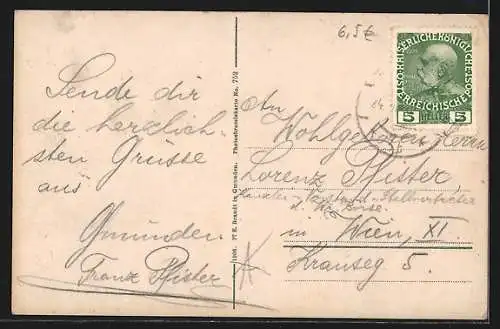 6,5 €
KAISERLICHE KÖNIGLICHE
ÖSTERREICHISCHE POST
5 HELLER 5
Sende dir
die herzlich-
sten Grüsse
aus
Gmunden
Franz Pfister
An
Wohlgeboren Herrn
Lorenz Pfister
Kanzlei-Vorstand-Stellvertreter
d.
in Wien, XI.
Krauseg 5.
1908 E. Brandt in Gmunden. No. 752